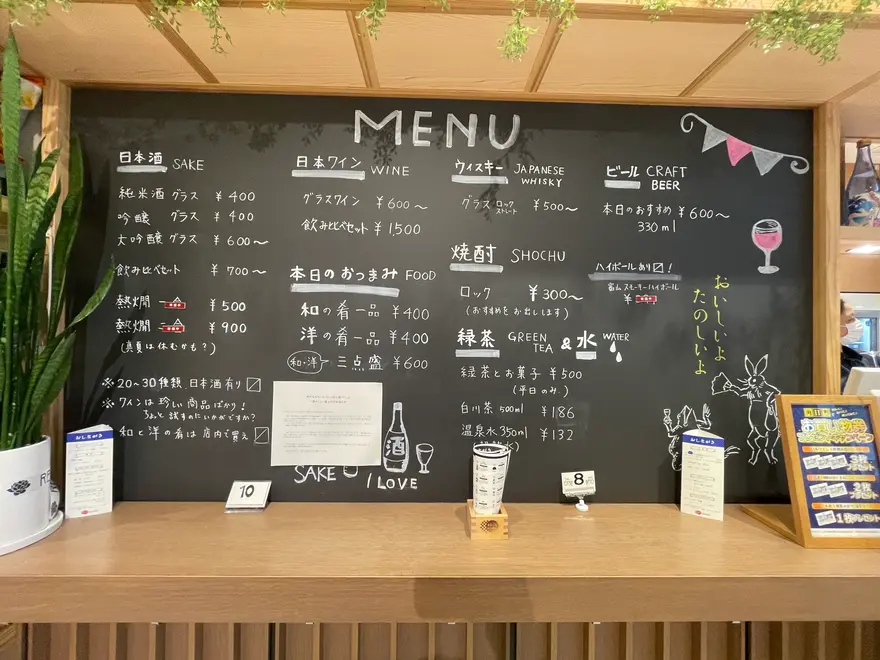 MENU
日本酒 SAKE
純米酒 グラス ¥400
吟醸 グラス ¥400
大吟醸 グラス ¥600～
飲み比べセット ¥700～
熱燗 ¥500
熱燗 ¥900
(真夏は休むかも?)
※20～30種類、日本酒有り
※ワインは珍しい商品ばかり!
ちょっと試すのにいかがですか?
和と洋の肴は店内で買え
日本ワイン WINE
グラスワイン ¥600～
飲み比べセット ¥1,500
本日のおつまみ FOOD
和の肴一品 ¥400
洋の肴一品 ¥400
和・洋 三点盛 ¥600
酒
SAKE I LOVE
ウィスキー JAPANESE WHISKY
グラス ロック ストレート ¥500～
焼酎 SHOCHU
ロック ¥300～
(おすすめをお出しします)
緑茶 GREEN TEA & 水 WATER
緑茶とお菓子 ¥500
(平日のみ)
白川茶 500ml ¥186
温泉水 350ml ¥132
ビール CRAFT BEER
本日のおすすめ ¥600～
330ml
ハイボールあり!
富山スモーキーハイボール
¥
おいしいよ
たのしいよ
10
8
おしながき
おしながき